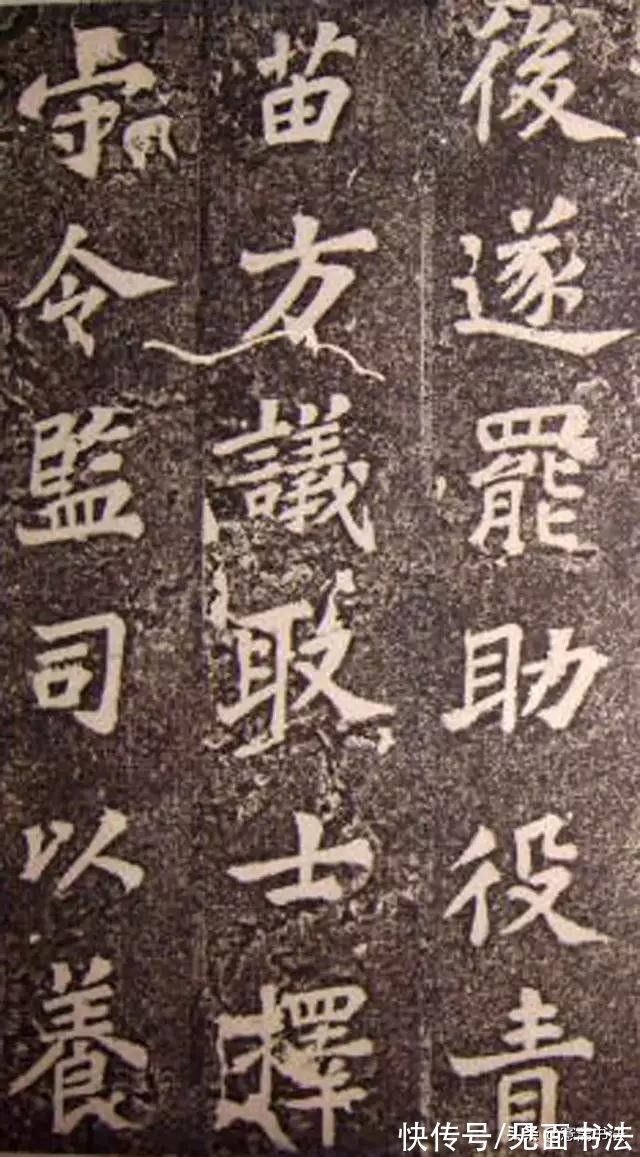 後遂罷助役青
苗方議取士擇
守令監司以養
快传号/见面书法